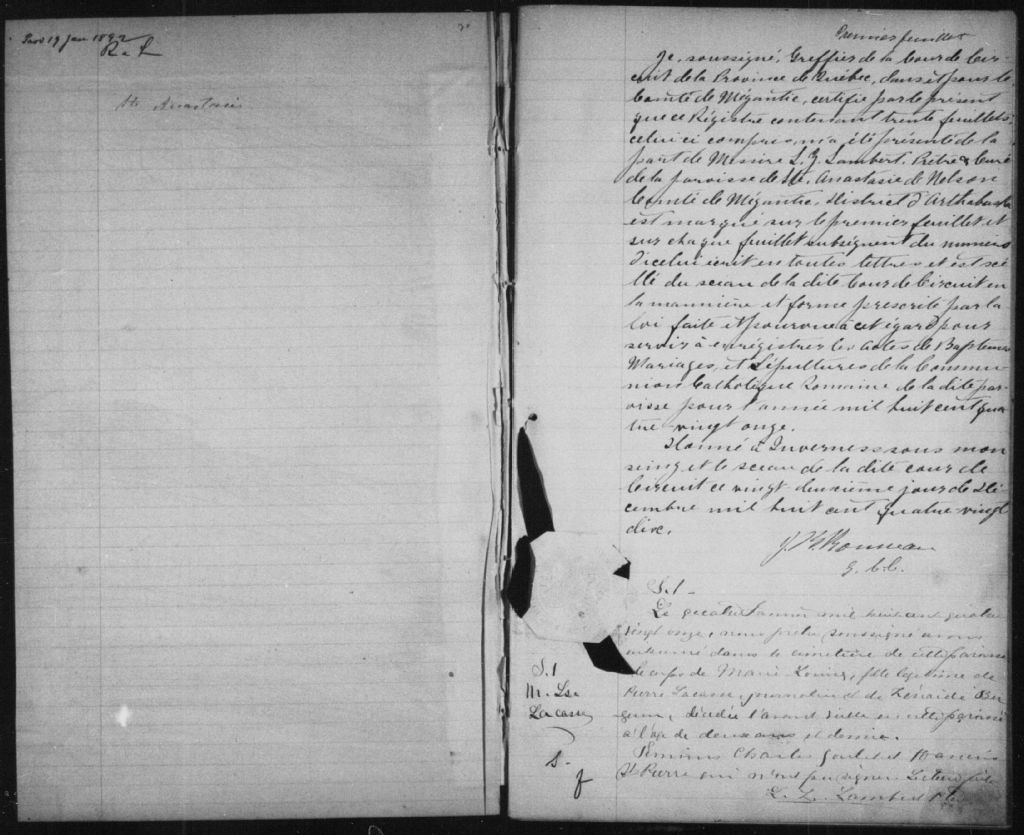 19 Jan 1892
Ste Anastasie
Premier feuillet
Je, soussigné, Greffier de la Cour de Cir-
cuit de la Province de Québec, dans et pour le
Comté de Mégantic, certifie par le présent
que ce Régistre contenant trente feuillets,
celui ci compris, m'a été présenté de la
part de Messire L. Z. Lambert. Prêtre & Curé
de la paroisse de Ste. Anastasie de Nelson
Comté de Mégantic, District d'Arthabaska
est marqué sur le premier feuillet et
sur chaque feuillet subséquent du numéro
d'icelui écrit en toutes lettres et est scé
llé du sceau de la dite Cour de Circuit en
la mannière et forme prescrite par la
loi faite et pourvue à cet égard pour
servir à enrégistrer les actes de Baptêmes
Mariages, et Sépultures de la Commu-
nion Catholique Romaine de la dite par-
oisse pour l'année mil huit cent qua
tre vingt onze.
Donné à Inverness sous mon
seing et le sceau de la dite cour de
Circuit ce vingt deuxième jour de Dé
cembre mil huit cent quatre-vingt
dix.
G. C. C.
S. 1
Le quatre Janvier mil huit cent quatre
vingt onze, nous prêtre soussigné avons
inhumé dans le cimetière de cette paroisse
le corps de Marie Louise, fille légitime de
Pierre Lacasse, journalier et de Zénaïde
décédée l'avant veille en cette paroisse
à l'âge de deux ans et demie.
Témoins Charles
St Pierre qui n'ont pu signer. Lecture faite
L. Z. Lambert Ptre
S. 1
M. Lse
Lacasse
S.
f